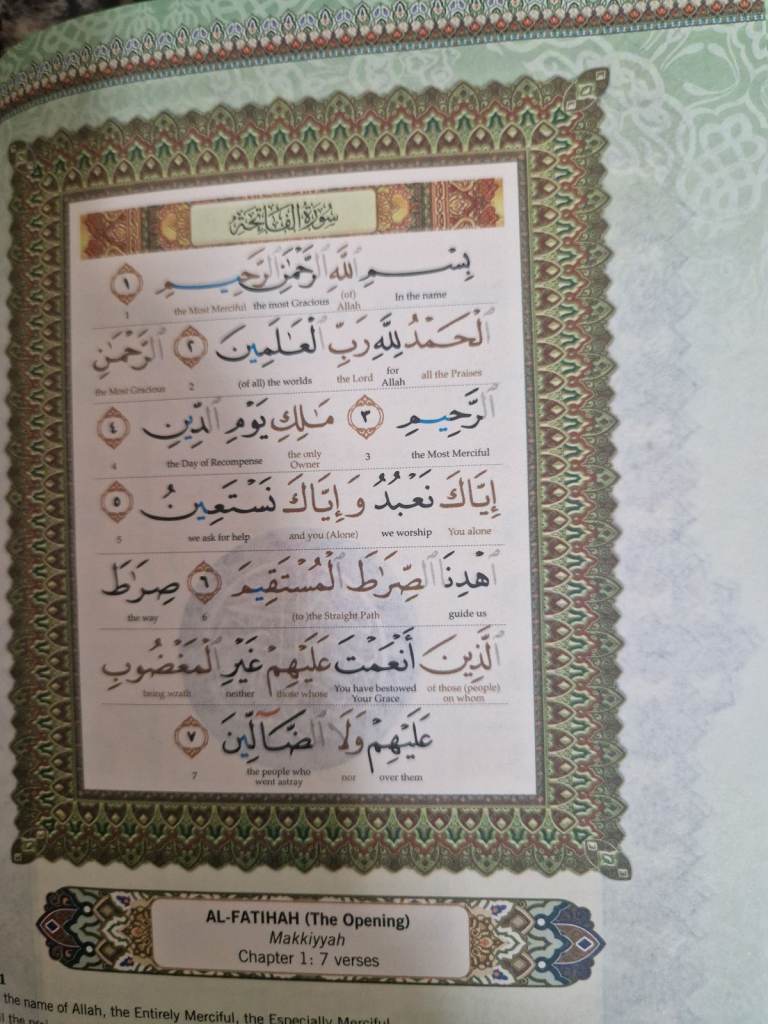 سُورَةُ الفَاتِحَةِ
بِسْمِ ٱللَّهِ ٱلرَّحْمَٰنِ ٱلرَّحِيمِ ١
In the name (of) Allah the most Gracious the Most Merciful 1
ٱلْحَمْدُ لِلَّهِ رَبِّ ٱلْعَٰلَمِينَ ٢ ٱلرَّحْمَٰنِ
all the Praises for Allah the Lord (of all) the worlds 2 the Most Gracious
ٱلرَّحِيمِ ٣ مَٰلِكِ يَوْمِ ٱلدِّينِ ٤
the Most Merciful 3 the only Owner the Day of Recompense 4
إِيَّاكَ نَعْبُدُ وَإِيَّاكَ نَسْتَعِينُ ٥
You alone we worship and you (Alone) we ask for help 5
ٱهْدِنَا ٱلصِّرَٰطَ ٱلْمُسْتَقِيمَ ٦ صِرَٰطَ
guide us (to )the Straight Path 6 the way
ٱلَّذِينَ أَنْعَمْتَ عَلَيْهِمْ غَيْرِ ٱلْمَغْضُوبِ
of those (people) on whom You have bestowed Your Grace those whose neither being wrath
عَلَيْهِمْ وَلَا ٱلضَّآلِّينَ ٧
over them nor the people who went astray 7
AL-FATIHAH (The Opening)
Makkiyyah
Chapter 1: 7 verses
1
the name of Allah, the Entirely Merciful, the Especially Merciful